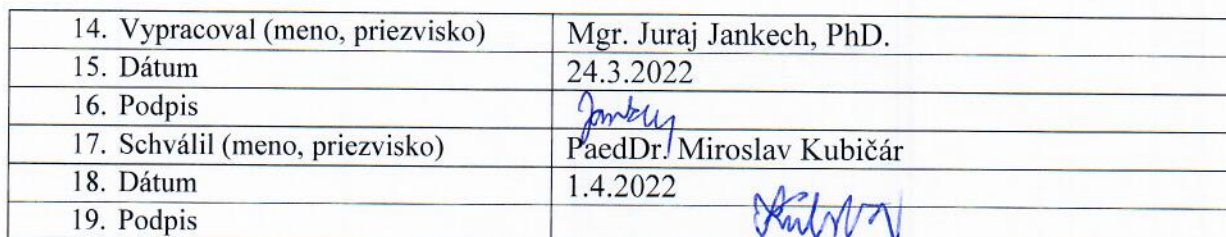 14. Vypracoval (meno, priezvisko) Mgr. Juraj Jankech, PhD.
15. Dátum 24.3.2022
16. Podpis
17. Schválil (meno, priezvisko) PaedDr. Miroslav Kubičár
18. Dátum 1.4.2022
19. Podpis